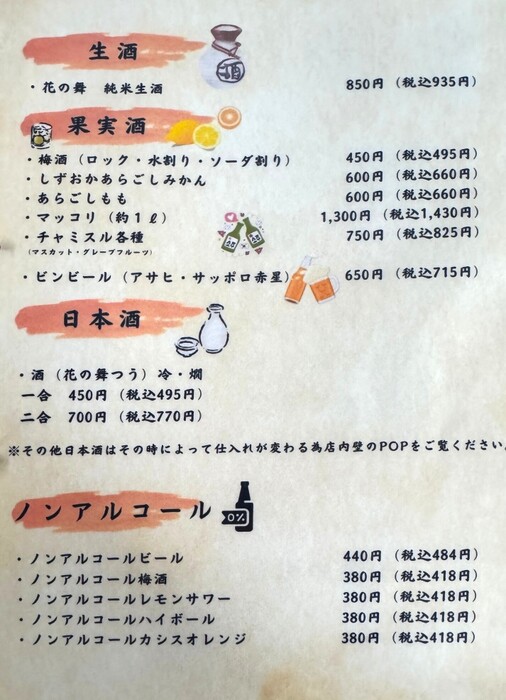 生酒
・花の舞 純米生酒 850円(税込935円)
果実酒
・梅酒(ロック・水割り・ソーダ割り) 450円(税込495円)
・しずおかあらごしみかん 600円(税込660円)
・あらごしもも 600円(税込660円)
・マッコリ(約1ℓ) 1,300円(税込1,430円)
・チャミスル各種 750円(税込825円)
(マスカット・グレープフルーツ)
・ビンビール(アサヒ・サッポロ赤星) 650円(税込715円)
日本酒
・酒(花の舞つう)冷・燗
一合 450円(税込495円)
二合 700円(税込770円)
※その他日本酒はその時によって仕入れが変わる為店内壁のPOPをご覧ください。
ノンアルコール
0%
・ノンアルコールビール 440円(税込484円)
・ノンアルコール梅酒 380円(税込418円)
・ノンアルコールレモンサワー 380円(税込418円)
・ノンアルコールハイボール 380円(税込418円)
・ノンアルコールカシスオレンジ 380円(税込418円)